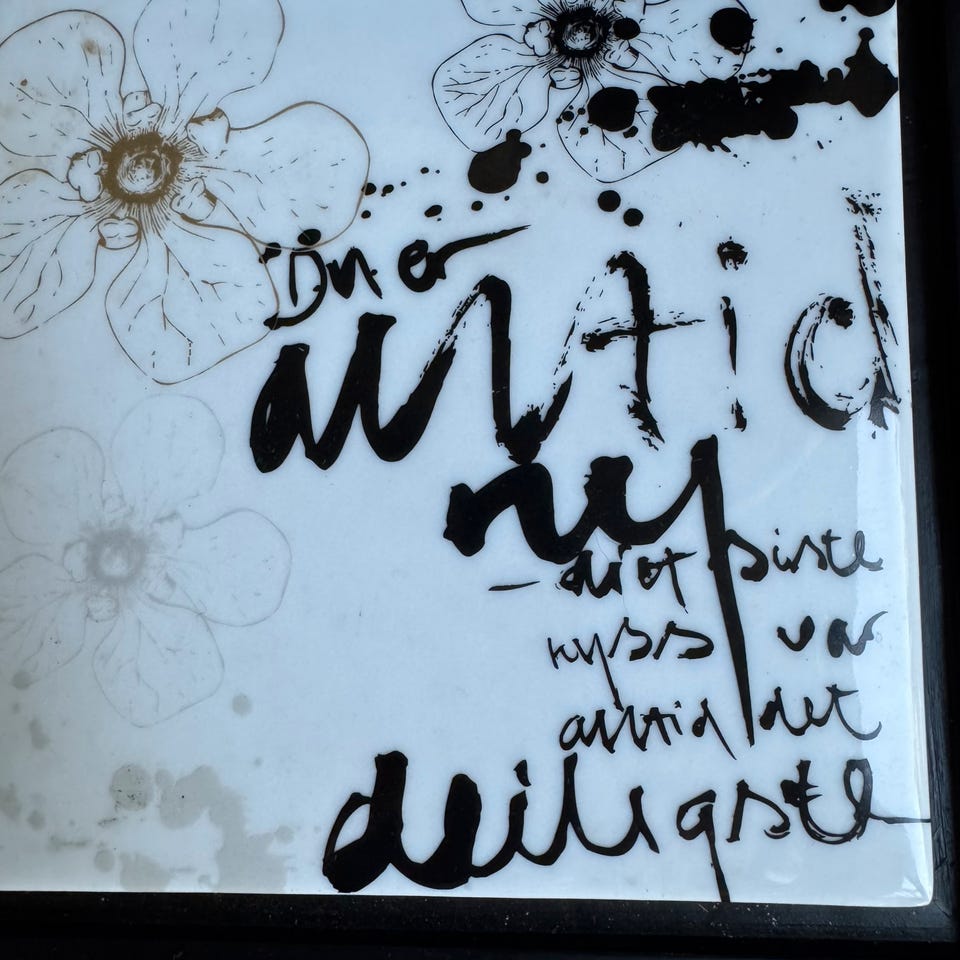 Du er
alltid
ny
– ditt siste
kyss var
alltid det
deiligste